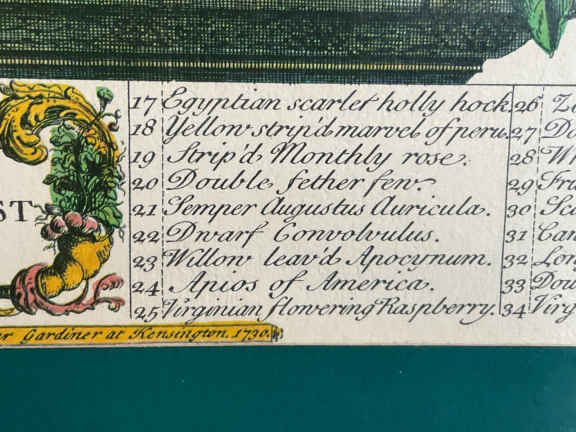 17 Egyptian scarlet holly hock
18 Yellow strip'd marvel of peru.
19 Strip'd Monthly rose.
20 Double fether few.
21 Semper Augustus Auricula.
22 Dwarf Convolvulus.
23 Willow leav'd Apocynum.
24 Apios of America.
25 Virginian flowering Raspberry.
26
27
28
29
30
31
32
33
34
ST
Gardiner at Kensington. 1730.